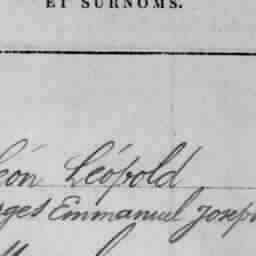 ET SURNOMS.
éon Léopold
rges Emmanuel Joseph